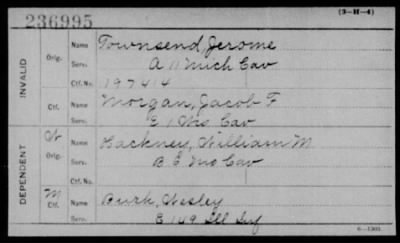 236995
(3—H—4)
INVALID
Orig.
Name Townsend, Jerome
Serv. A 11 Mich Cav
Ctf. No. 197414
Ctf.
Name Morgan, Jacob F
Serv. E 1 Wis Cav
DEPENDENT
W
Orig.
Name Hackney, William M
Serv. B 6 Mo Cav
Ctf. No.
M
Ctf.
Name Burk, Wesley
Serv. E 149 Ill Inf
6—1301